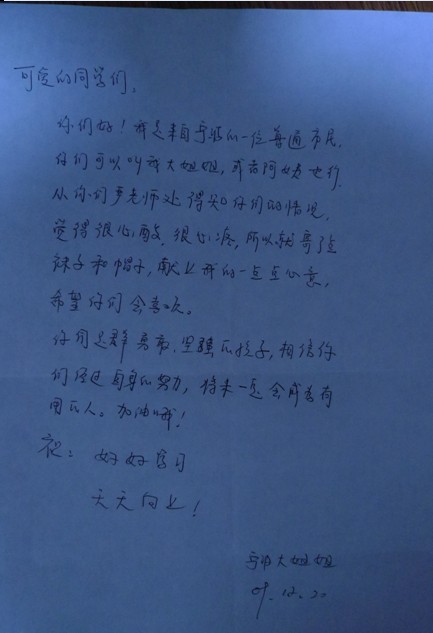 可爱的同学们,
你们好!我是来自宁波的一位普通市民,
你们可以叫我大姐姐,或者阿姨也行.
从你们严老师处得知你们的情况,
觉得很心酸、很心疼,所以就寄了点
袜子和帽子,献上我的一点点心意,
希望你们会喜欢。
你们是群勇敢、坚强的孩子,相信你
们经过自身的努力,将来一定会成为有
用的人。加油哦!
祝:好好学习
天天向上!
大姐姐
09.12.20